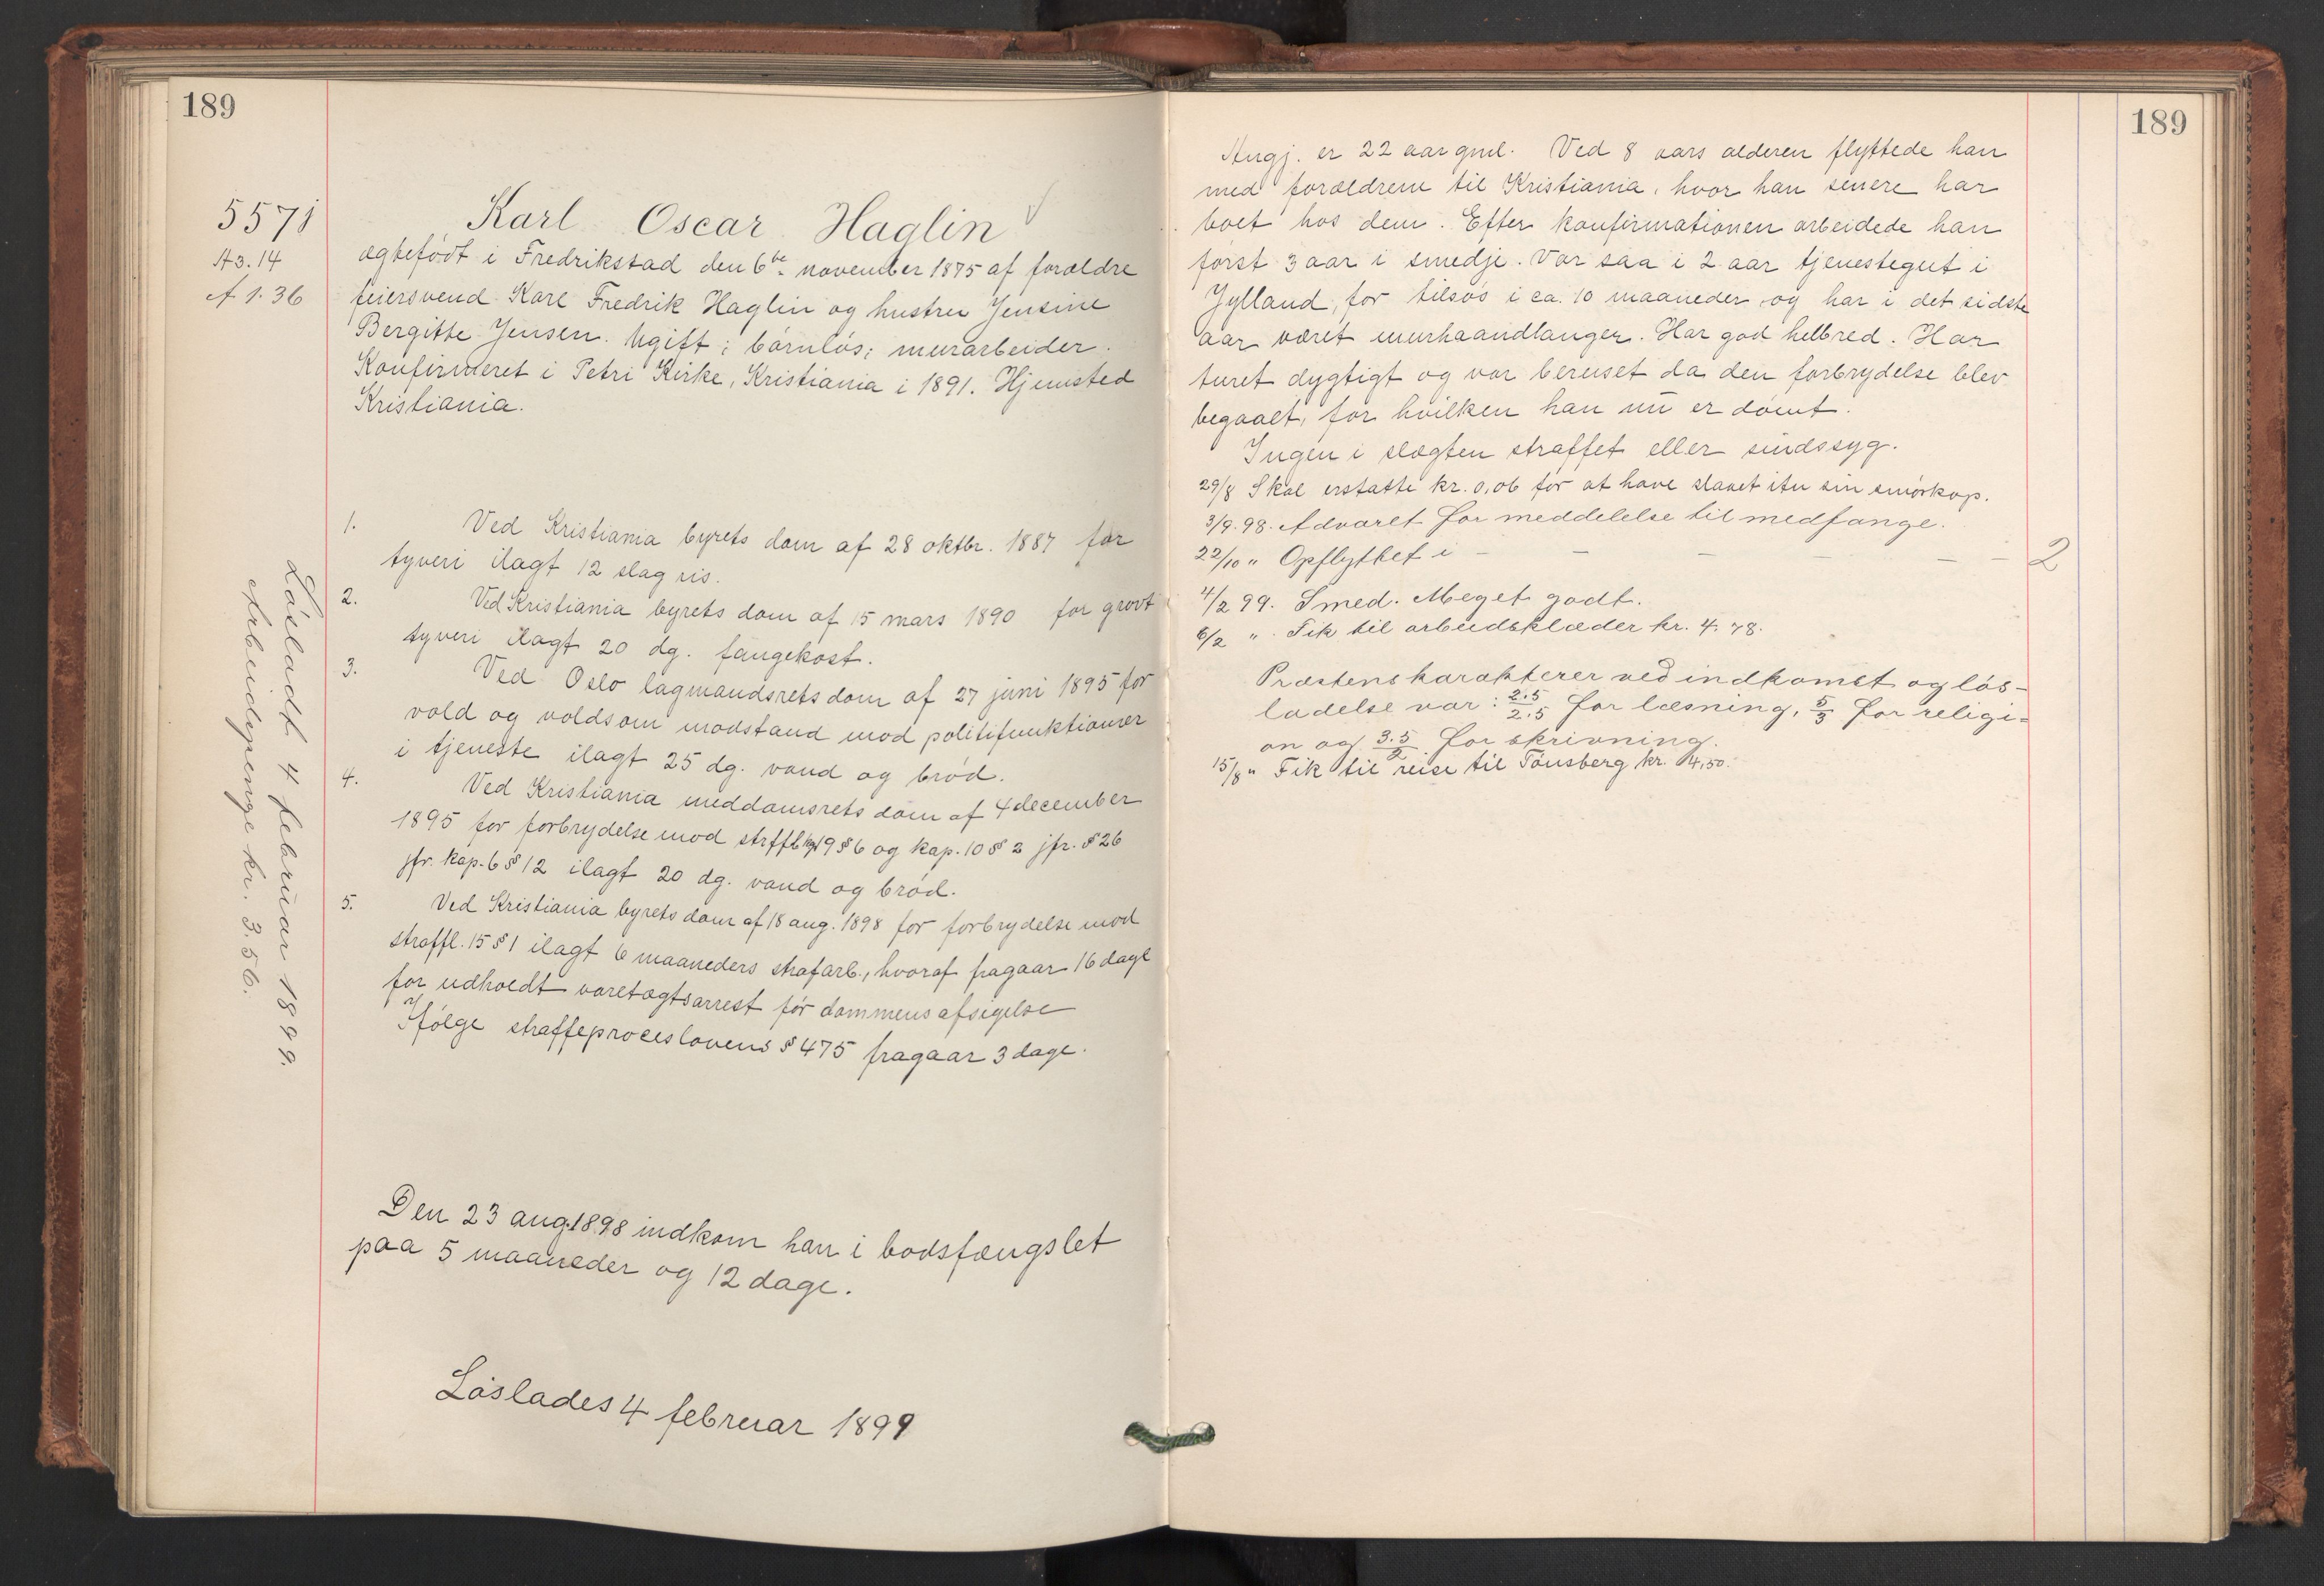 189
5571
A3.14
A 1.36
Karl Oscar Haglin
ægtefødt i Fredrikstad den 6te november 1875 af forældre
feiersvend Karl Fredrik Haglin og hustru Jensine
Bergitte Jensen. Ugift; børnløs; murarbeider.
Konfirmeret i Petri Kirke, Kristiania i 1891. Hjemsted
Kristiania.
1. Ved Kristiania byrets dom af 28 oktbr. 1887 for
tyveri ilagt 12 slag ris.
2. Ved Kristiania byrets dom af 15 mars 1890 for grovt
tyveri ilagt 20 dg. fangekost.
3. Ved Oslo lagmandsrets dom af 27 juni 1895 for
vold og voldsom modstand mod politifunktionær
i tjeneste ilagt 25 dg. vand og brød.
4. Ved Kristiania meddomsrets dom af 4 december
1895 for forbrydelse mod strffl kp 19 § 6 og kap. 10 § 2 jfr. § 26
jfr. kap. 6 § 12 ilagt 20 dg. vand og brød.
5. Ved Kristiania byrets dom af 18 aug. 1898 for forbrydelse mod
straffl. 15 § 1 ilagt 6 maaneders strafarb., hvoraf fragaar 16 dage
for udholdt varetægtsarrest før dommens afsigelse
Ifølge straffeproceslovens § 475 fragaar 3 dage.
Den 23 aug. 1898 indkom han i bodsfængslet
paa 5 maaneder og 12 dage.
Løslades 4 februar 1899
Løsladt 4 februar 1899.
Arbeidspenge kr. 3.56.
189
Angj. er 22 aar gml. Ved 8 aars alderen flyttede han
med forældrene til Kristiania, hvor han senere har
boet hos dem. Efter konfirmationen arbeidede han
først 3 aar i smedje. Var saa i 2 aar tjenestegut i
Jylland, for tilsøs i ca. 10 maaneder og har i det sidste
aar været murhaandlanger. Har god helbred. Har
turet dygtigt og var beruset da den forbrydelse blev
begaaet, for hvilken han nu er dømt.
Ingen i slægten straffet eller sindssyg.
29/8 Skal erstatte kr. 0,06 for at have slaaet itu sin smørkop.
3/9.98. Advaret for meddelelse til medfange.
22/10 " Opflyttet i – – – – – 2
4/2 99. Smed. Meget godt.
6/2 " Fik til arbeidsklæder kr. 4.78.
Præstens karakterer ved indkomst og løs-
ladelse var: 2.5/2.5 for læsning, 5/3 for religi=
on og 3.5/2 for skrivning.
15/8 " Fik til reise til Tönsberg kr. 4,50.